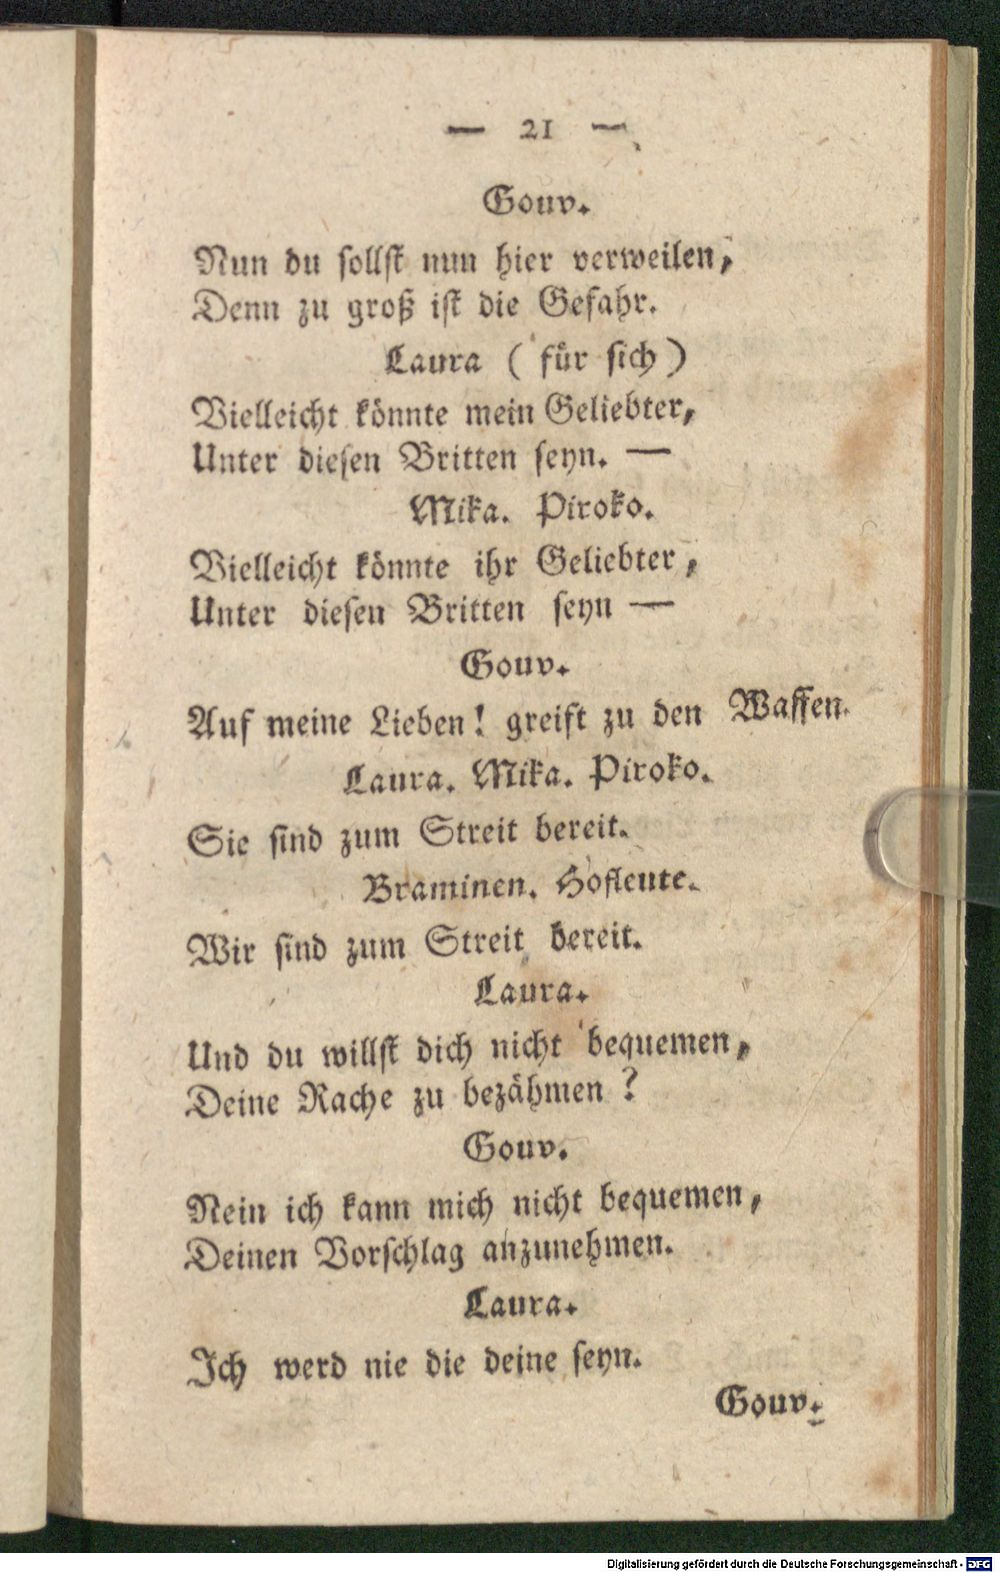 — 21 —
Gouv.
Nun du sollst nun hier verweilen,
Denn zu groß ist die Gefahr.
Laura ( für sich )
Vielleicht könnte mein Geliebter,
Unter diesen Britten seyn. —
Mika. Piroko.
Vielleicht könnte ihr Geliebter,
Unter diesen Britten seyn —
Gouv.
Auf meine Lieben! greift zu den Waffen.
Laura. Mika. Piroko.
Sie sind zum Streit bereit.
Braminen. Hofleute.
Wir sind zum Streit bereit.
Laura.
Und du willst dich nicht bequemen,
Deine Rache zu bezähmen?
Gouv.
Nein ich kann mich nicht bequemen,
Deinen Vorschlag anzunehmen.
Laura.
Ich werd nie die deine seyn.
Gouv.
Digitalisierung gefördert durch die Deutsche Forschungsgemeinschaft - DFG